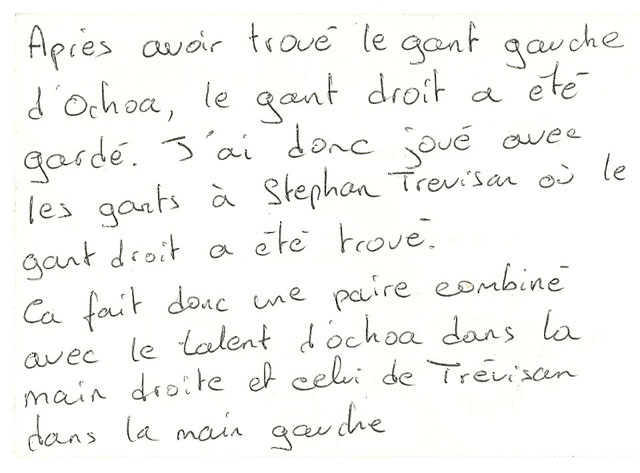 Après avoir troué le gant gauche
d'Ochoa, le gant droit a été
gardé. J'ai donc joué avec
les gants à Stephan Trevisan où le
gant droit a été troué.
Ca fait donc une paire combiné
avec le talent d'ochoa dans la
main droite et celui de Trévisan
dans la main gauche